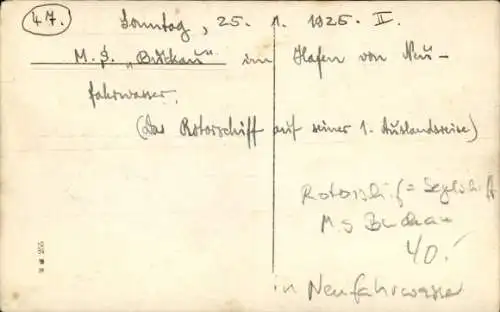 47.
Sonntag, 25. 1. 1925. II.
M.S. „Buckau" im Hafen von Neu-
fahrwasser.
(Das Rotorschiff auf seiner 1. Auslandsreise)
Rotorschiff = Segelschiff
M S Buckau
40.-
in Neufahrwasser